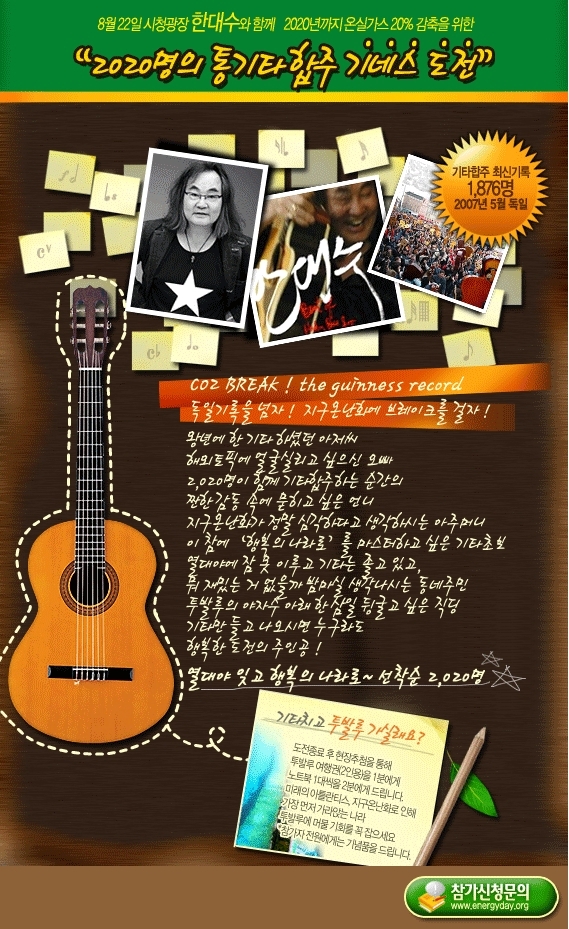 8월 22일 시청광장 한대수와 함께 2020년까지 온실가스 20% 감축을 위한
"2020명의 통기타합주 기네스 도전"
기타합주 최신기록
1,876명
2007년 5월 독일
한대수
CO2 BREAK! the guinness record
독일기록을 넘자! 지구온난화에 브레이크를 걸자!
왕년에 한 기타 하셨던 아저씨
해외토픽에 얼굴실리고 싶으신 오빠
2,020명이 함께 기타합주하는 순간의
짠한 감동 속에 묻히고 싶은 언니
지구온난화가 정말 심각하다고 생각하시는 아주머니
이 참에 '행복의 나라로' 를 마스터하고 싶은 기타초보
열대야에 잠 못 이루고 기타는 좋고 있고,
뭐 재밌는 거 없을까 밤마실 생각나시는 동네주민
투발루의 야자수 아래 한 삼일 뒹굴고 싶은 직딩
기타만 들고 나오시면 누구라도
행복한 도전의 주인공!
열대야 잊고 행복의 나라로~ 선착순 2,020명
기타치고 투발루 가실래요?
도전종료 후 현장추첨을 통해
투발루 여행권(2인용)을 1분에게
노트북 1대씩을 2분에게 드립니다.
미래의 아틀란티스, 지구온난화로 인해
가장 먼저 가라앉는 나라
투발루에 머물 기회를 꼭 잡으세요
참가자 전원에게는 기념품을 드립니다.
참가신청문의
www.energyday.org